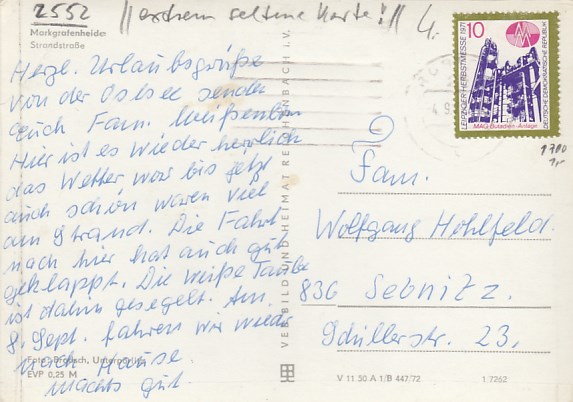 2552
||extrem seltene Karte!||
4.
Markgrafenheide
Strandstraße
Herzl. Urlaubsgrüße
von der Ostsee sendet
euch Fam.
Hier ist es wieder herrlich
das Wetter war bis jetzt
auch schön waren viel
am Strand. Die Fahrt
nach hier hat auch gut
geklappt. Die weiße Taube
ist dahin gesegelt. Am
8. Sept. fahren wir wieder
nach Hause.
Machts gut
Foto: Brosch,
EVP 0,25 M
VEB BILD UND HEIMAT REICHENBACH i. V.
10
LEIPZIGER HERBSTMESSE 1971
DEUTSCHE DEMOKRATISCHE REPUBLIK
MAG-Butadien-Anlage
1700
1,-
Fam.
Wolfgang Hohlfeld
836 Sebnitz.
Schillerstr. 23,
V 11 50 A 1/B 447/72
1/7262